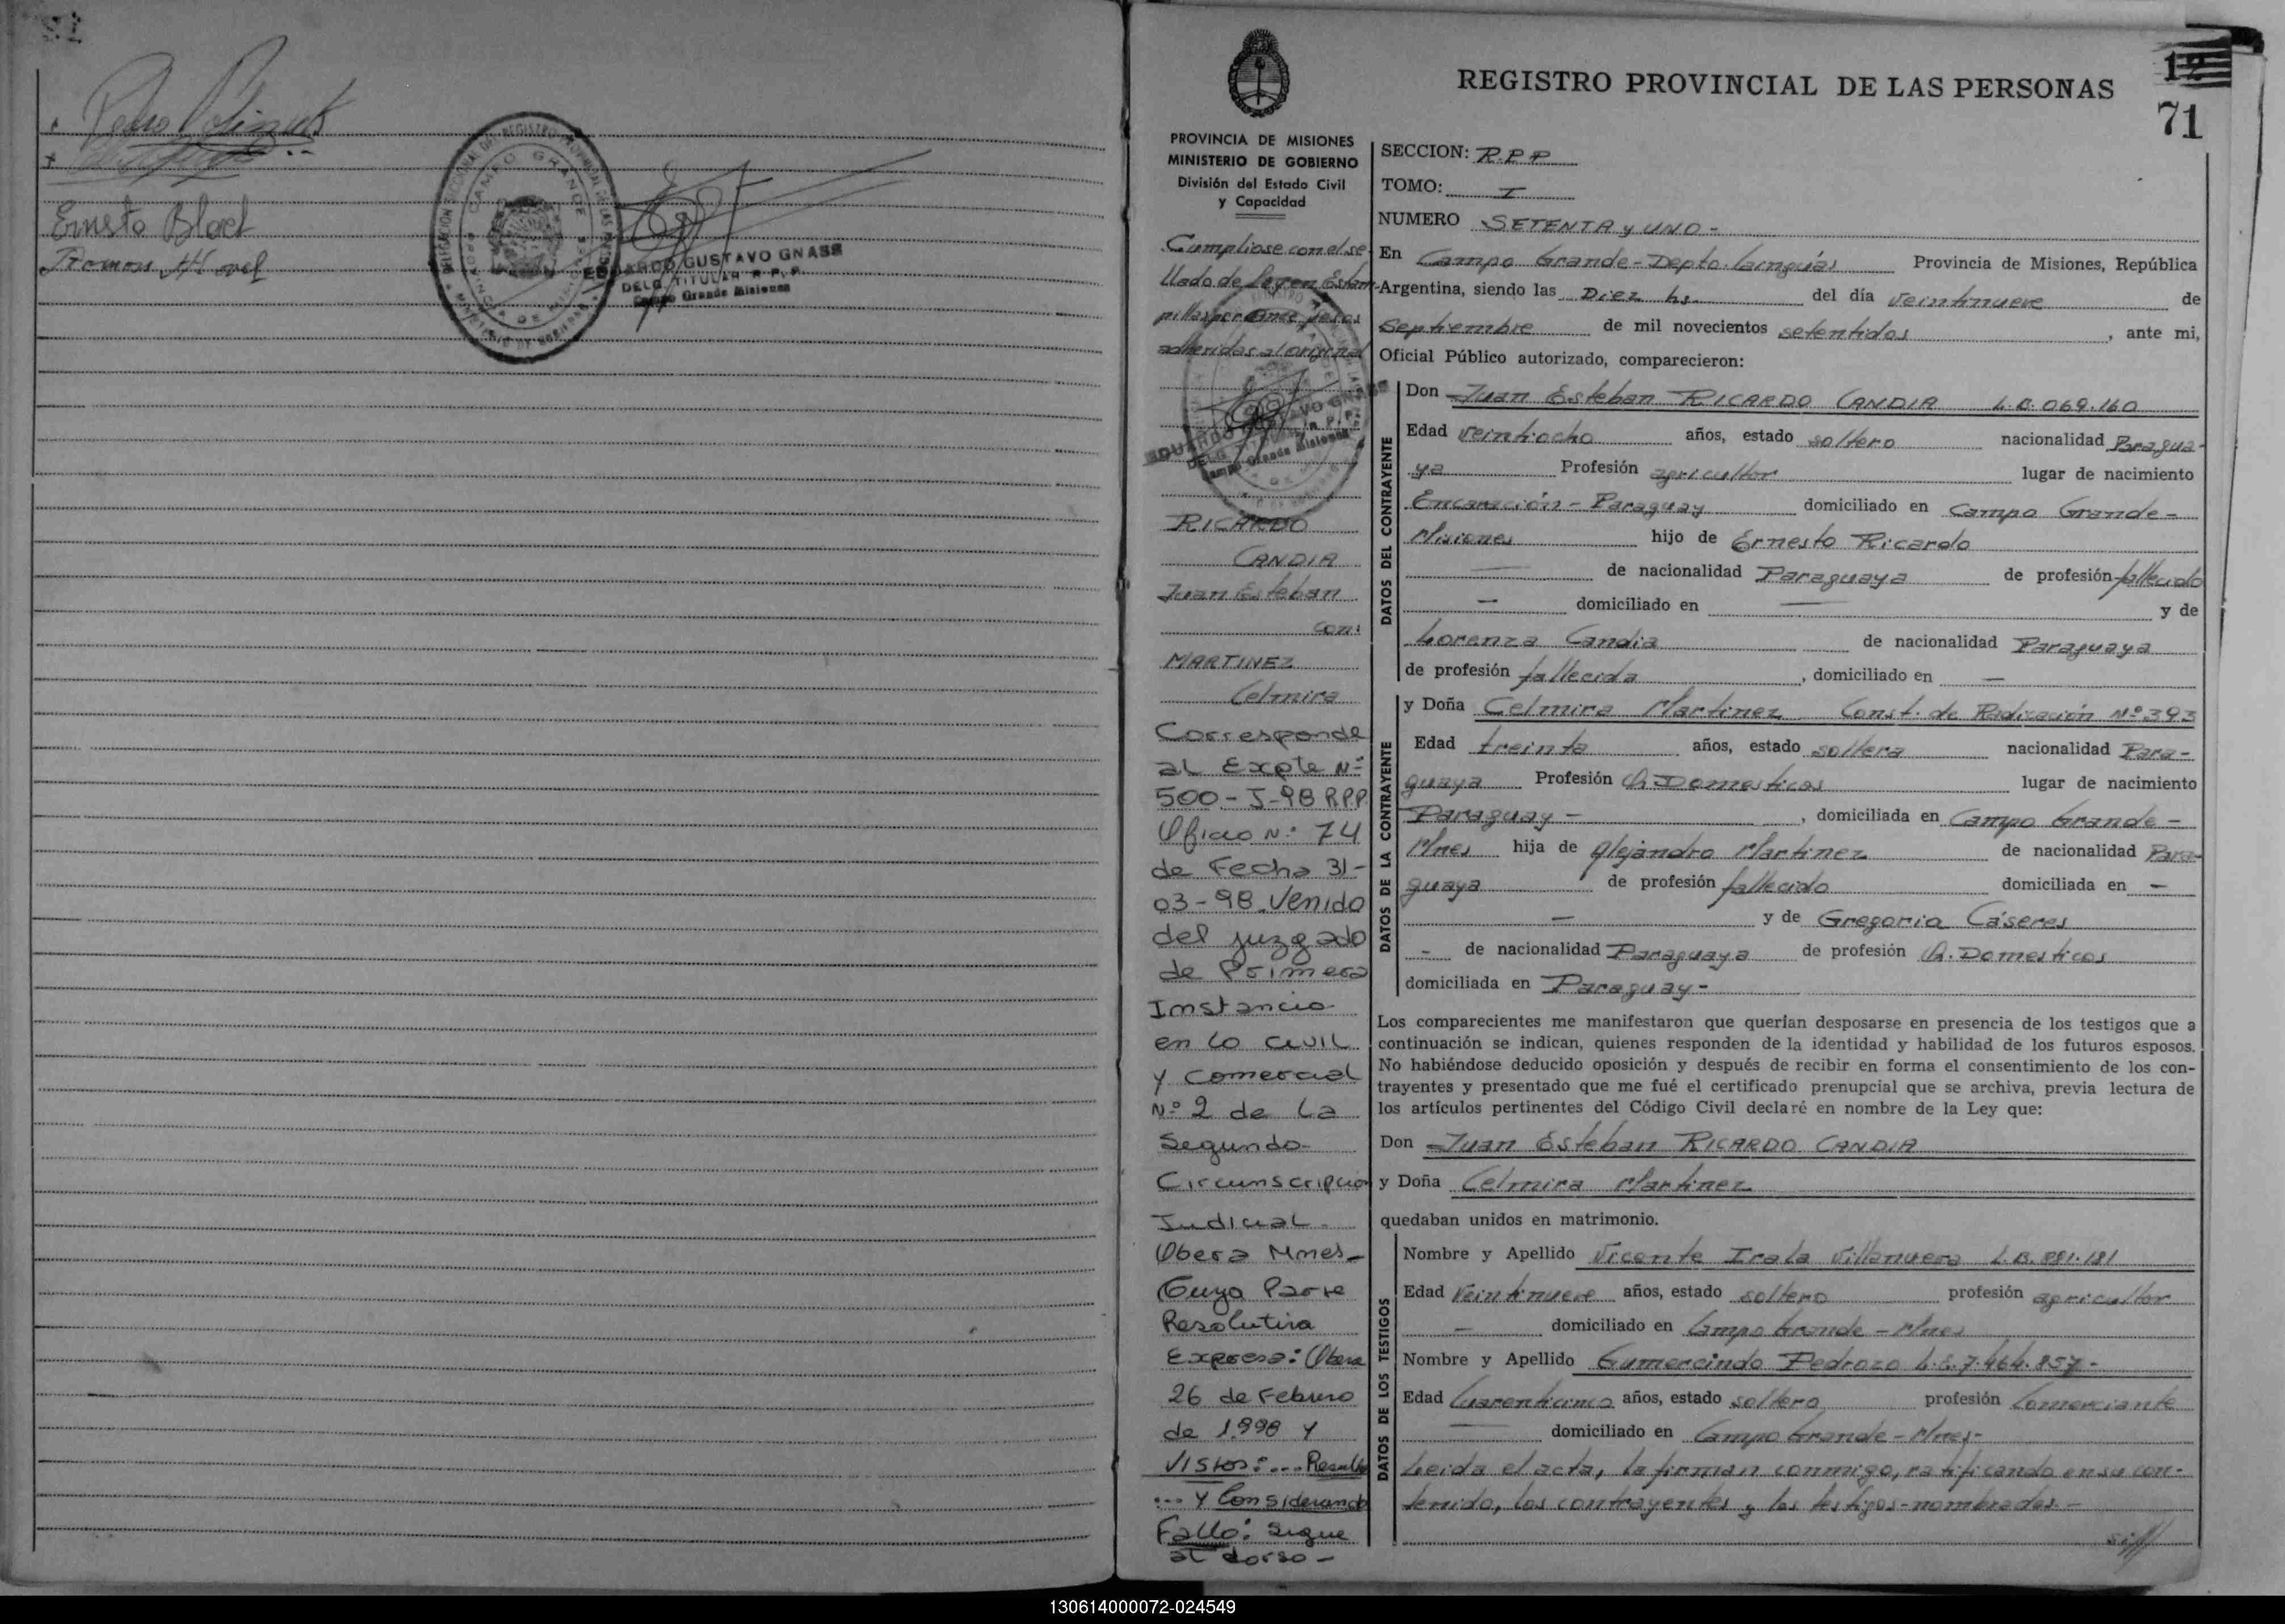 Pedro
Ernesto Bloch
EDUARDO GUSTAVO GNASS
DELG. TITULAR R. P. P.
Campo Grande Misiones
REGISTRO PROVINCIAL DE LAS PERSONAS
12
71
PROVINCIA DE MISIONES
MINISTERIO DE GOBIERNO
División del Estado Civil
y Capacidad
Cumpliose con el se-
llado de Ley en Estam-
pillas por once pesos
adheridas al original
EDUARDO GUSTAVO GNASS
DELG. TITULAR R. P. P.
Campo Grande Misiones
RICARDO
CANDIA
Juan Esteban
con:
MARTINEZ
Celmira
Corresponde
al Expte Nº
500-J-98 RPP
Oficio Nº 74
de Fecha 31-
03-98. Venido
del juzgado
de Primera
Instancia
en lo Civil
y Comercial
Nº 2 de La
Segunda
Circunscripción
Judicial.
Obera Mnes-
Cuya Parte
Resolutiva
Expresa: Obera
26 de Febrero
de 1.998 Y
VISTOS:... Resulta
... Y Considerando
Fallo: Sigue
al dorso-
SECCION: R.P.P
TOMO: I
NUMERO SETENTA y UNO-
En Campo Grande-Depto. Cainguás Provincia de Misiones, República
Argentina, siendo las Diez hs. del día veintinueve de
Septiembre de mil novecientos setentidos, ante mi,
Oficial Público autorizado, comparecieron:
DATOS DEL CONTRAYENTE
Don Juan Esteban RICARDO CANDIA L.B. 069.160
Edad veintiocho años, estado soltero nacionalidad Paragua-
ya Profesión agricultor lugar de nacimiento
Encarnación - Paraguay domiciliado en Campo Grande-
Misiones hijo de Ernesto Ricardo
— de nacionalidad Paraguaya de profesión fallecido
— domiciliado en — y de
Lorenza Candia de nacionalidad Paraguaya
de profesión fallecida, domiciliado en —
DATOS DE LA CONTRAYENTE
y Doña Celmira Martinez Const. de Radicación Nº 393
Edad treinta años, estado soltera nacionalidad Para-
guaya Profesión Q. Domesticos lugar de nacimiento
Paraguay -, domiciliada en Campo Grande-
Mnes hija de Alejandro Martinez de nacionalidad Para-
guaya de profesión fallecido domiciliada en —
— y de Gregoria Cáseres
- de nacionalidad Paraguaya de profesión Q. Domesticos
domiciliada en Paraguay-
Los comparecientes me manifestaron que querían desposarse en presencia de los testigos que a
continuación se indican, quienes responden de la identidad y habilidad de los futuros esposos.
No habiéndose deducido oposición y después de recibir en forma el consentimiento de los con-
trayentes y presentado que me fué el certificado prenupcial que se archiva, previa lectura de
los artículos pertinentes del Código Civil declaré en nombre de la Ley que:
Don Juan Esteban RICARDO CANDIA
y Doña Celmira Martinez
quedaban unidos en matrimonio.
DATOS DE LOS TESTIGOS
Nombre y Apellido Vicente Irala Villanueva L.B. 881.181
Edad Veintinueve años, estado soltero profesión agricultor
— domiciliado en Campo Grande - Mnes
Nombre y Apellido Gumercindo Pedrozo L.E. 7.464.857-
Edad Cuarenticinco años, estado soltero profesión Comerciante
— domiciliado en Campo Grande-Mnes-
Leida el acta, la firman conmigo, ratificando en su con-
tenido, los contrayentes y los testigos-nombrados-
130614000072-024549